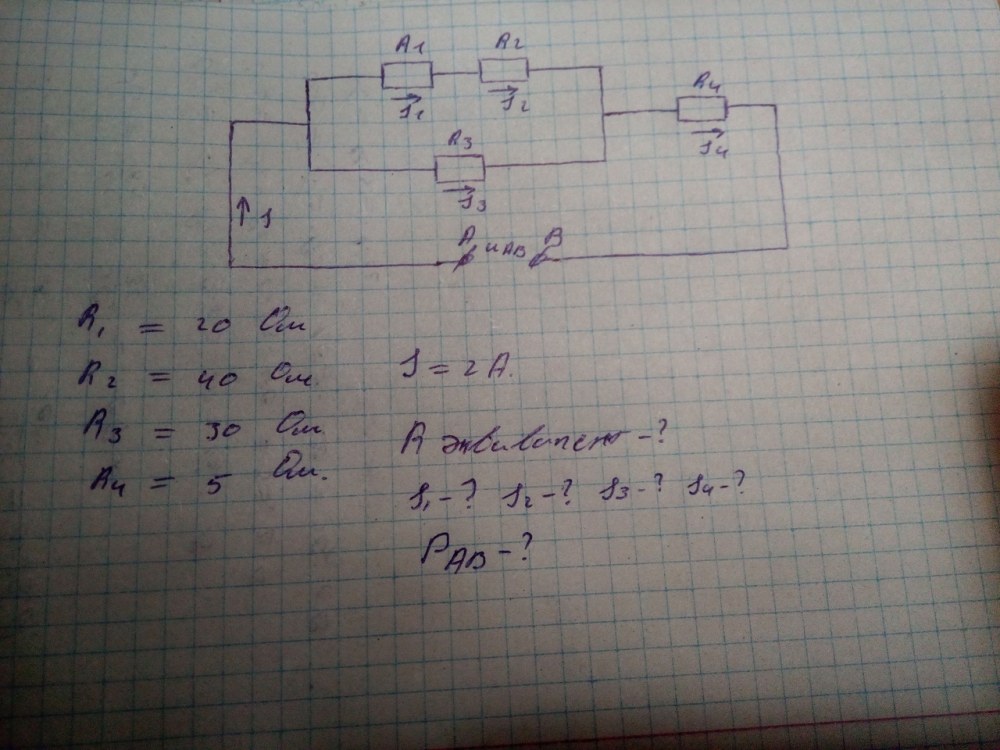 R1 R2
I1 I2
R4
I4
R3
I3
I
A UAB B
R1 = 20 Ом
R2 = 40 Ом
R3 = 30 Ом
R4 = 5 Ом.
I = 2 A.
R эквивалент - ?
I1 - ? I2 - ? I3 - ? I4 - ?
PAB - ?